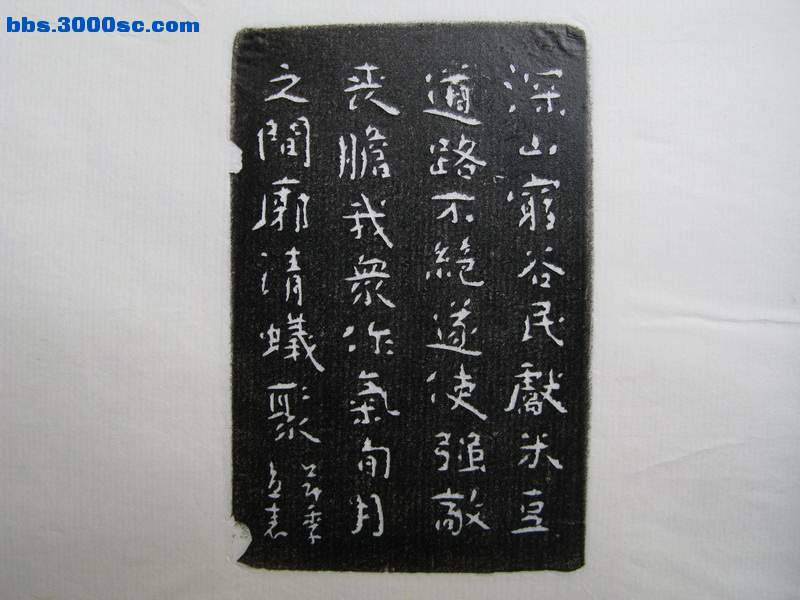 bbs.3000sc.com
深山窮谷民獻米豆
道路不絕遂使强敵
喪膽我衆作氣旬月
之間廓清蟻聚